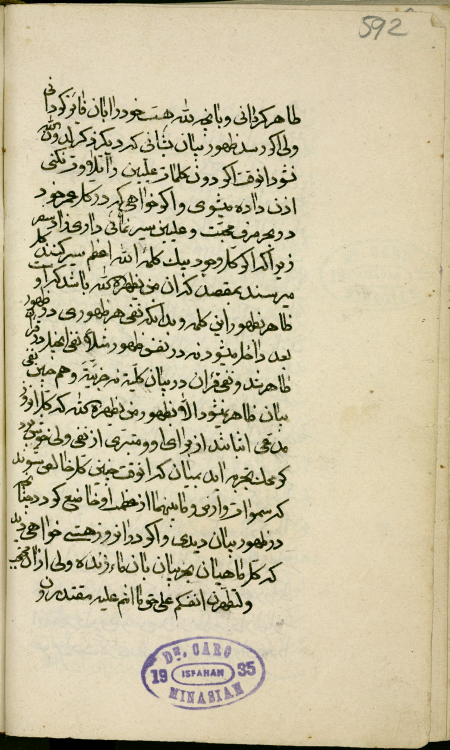 592
طاهر گردانی و بانچه لله هست خود را بان فائز گردانی
ولی اگر رسد ظهور بیان بشانی که دیگر ذکر لدون الله
نشود انوقت اگر دون کلمات علیین را تلاوت نکنی
اذن داده میشوی و اگر خواهی که در کل عمر خود
در بحر محبت و علیین سیر نمائی داری زاد سفر
زیرا که اگر کل وجود بیک کلمة الله اعظم سیر کنند
میرسند بمقصد که ان من یظهره الله باشد که او
ظاهر بظهور این کلمه و بدانکه نفی هر ظهوری در ظهور
بعد داخل میشود نه در نفس ظهور مثلا نفی انجیل در قرآن
ظاهر شد و نفی قرآن در بیان و هم چنین نفی
بیان ظاهر نمیشود الا بظهور من یظهره الله که کل امروز
مدعی اثباتند از برای او و متبری از نفی ولی
که انوقت چنین کل خالص شوند
که سموات و ارض و ما بینهما از عظمت او خاضع گردد چنانچه
در ظهور بیان دیدی و اگر در انروز هستی خواهی دید
که کل ماهیان بحر بیان بان ماء زنده ولی از ان محتجب
ولتطهرن انفسکم علی حق ما انتم علیه مقتدرون
DR. CARO
19 ISPAHAN 35
MINASIAN